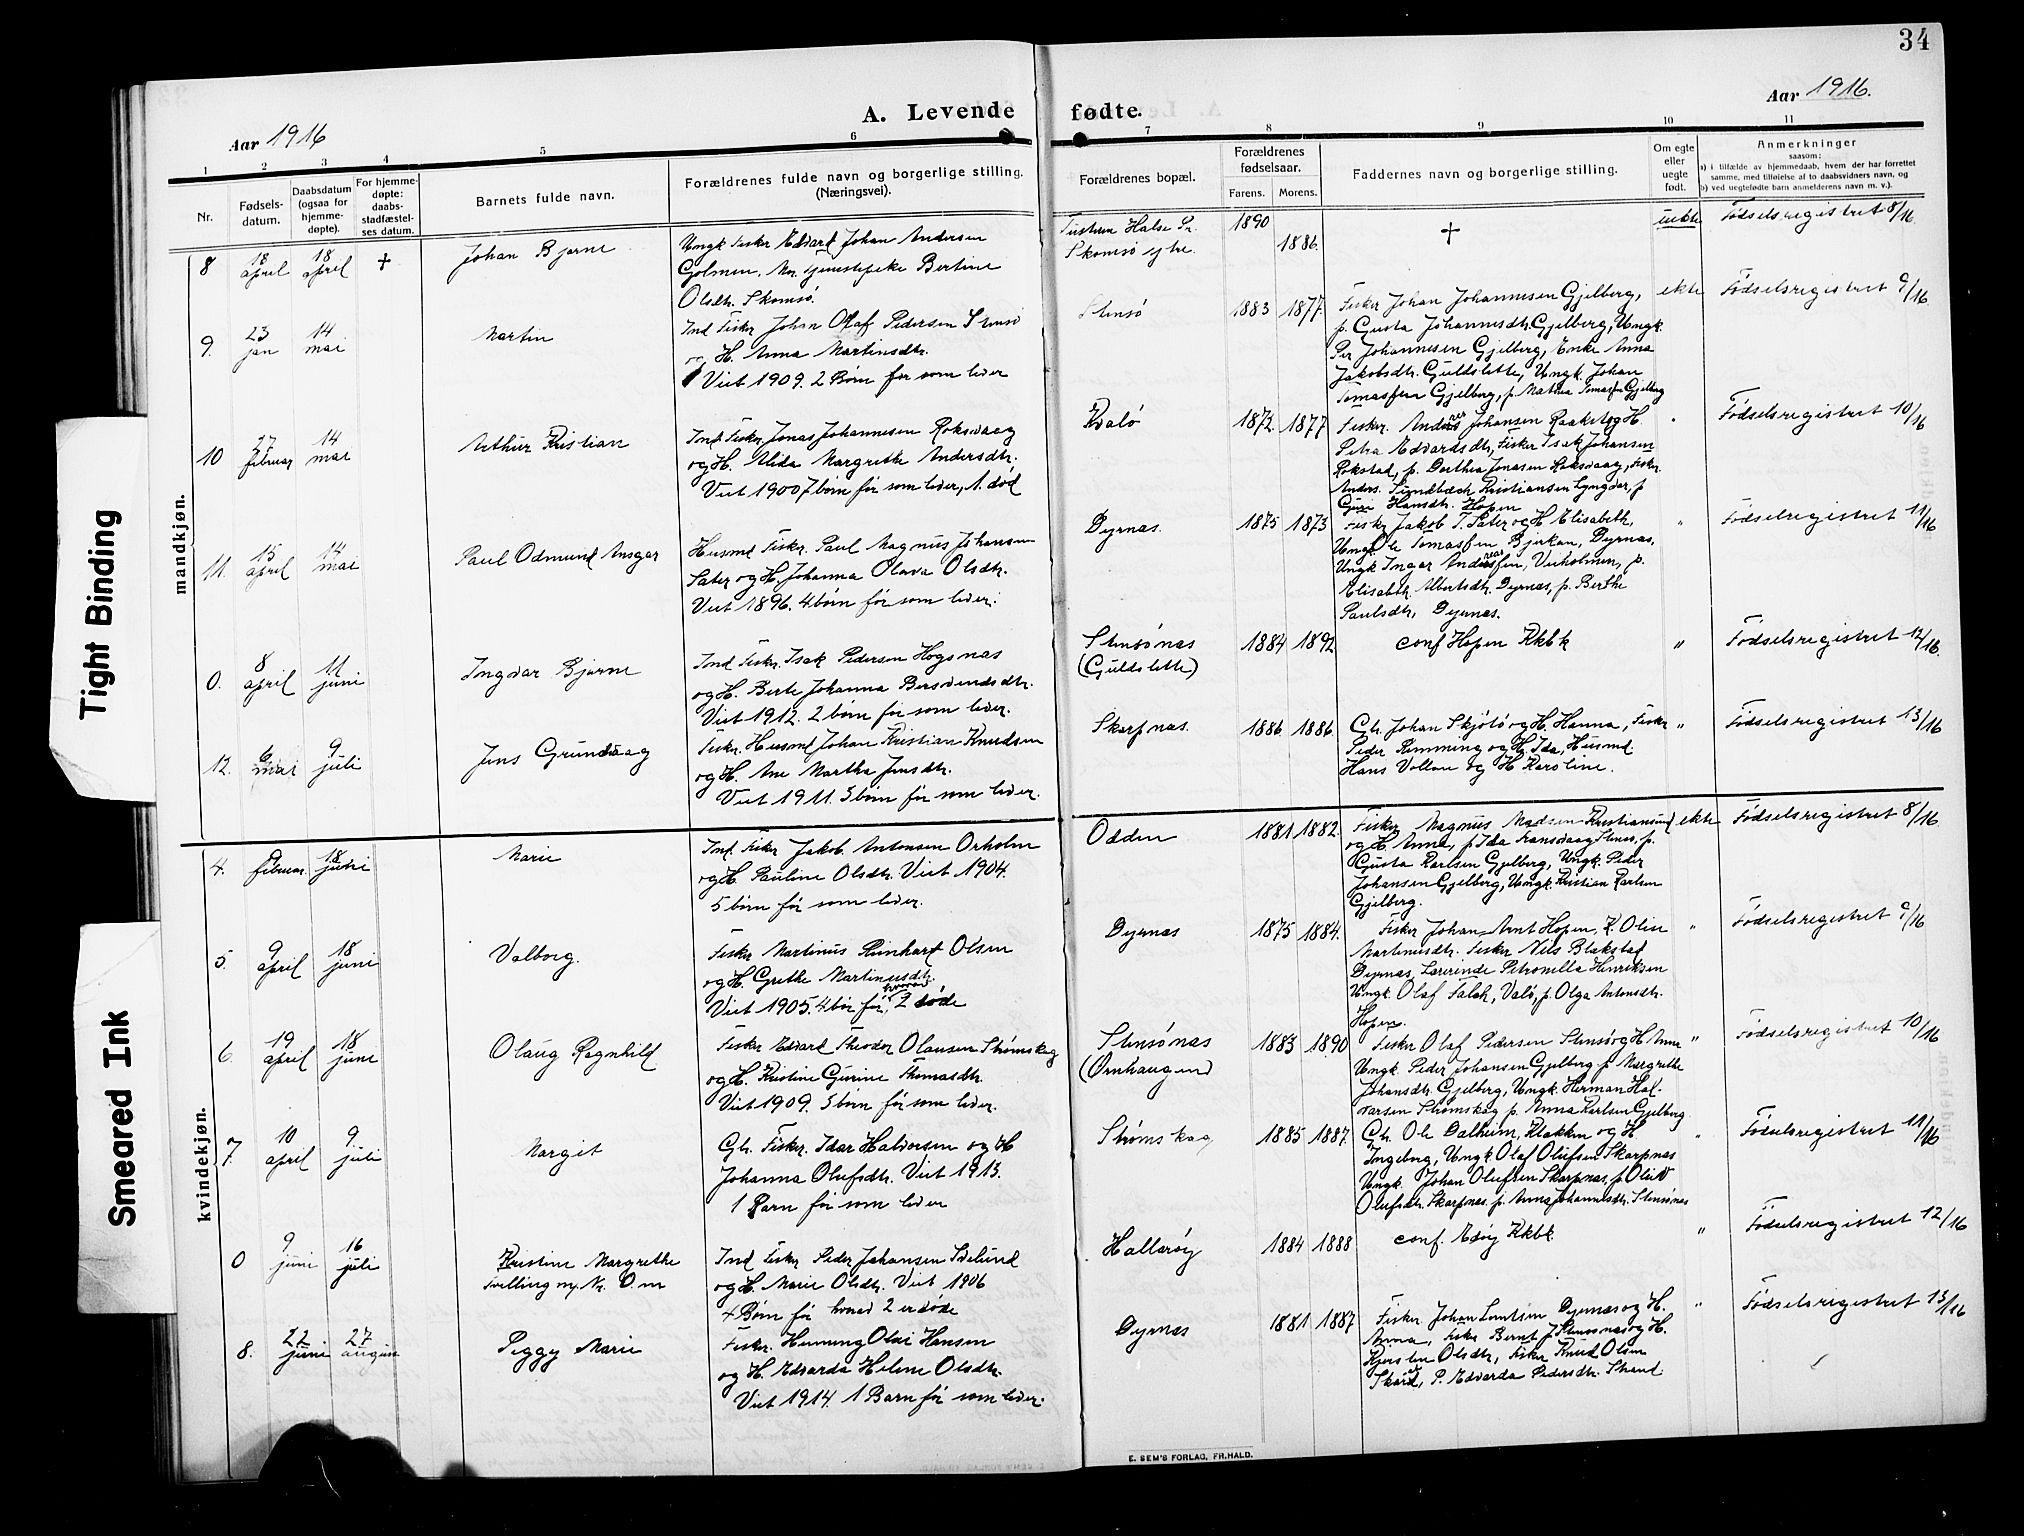 34
A. Levende fødte.
Aar 1916
Aar 1916.
1 2 3 4 5 6 7 8 9 10 11
Nr.
Fødsels-
datum.
Daabsdatum
(ogsaa for
hjemme-
døpte).
For hjemme-
døpte:
daabs-
stadfæstel-
ses datum.
Barnets fulde navn.
Forældrenes fulde navn og borgerlige stilling.
(Næringsvei).
Forældrenes bopæl.
Forældrenes
fødselsaar.
Farens. Morens.
Faddernes navn og borgerlige stilling.
Om egte
eller
uegte
født.
Anmerkninger
saasom:
a) i tilfælde av hjemmedaab, hvem der har forrettet
samme, med tilføielse af to daabsvidners navn, og
b) ved uegtefødte barn anmelderens navn m. v.).
mandkjøn.
8
18 april
18 april
+
Johan Bjarne
Ungk Fisker Edvard Johan Andersen
Golmen. Mor tjenestepike Bertine
Olsdtr. Skomsø.
Tustern Halse Pr.
Skomsø ytre
1890
1886.
+
uekte
Fødselsregistret 8/16.
9.
23 jan
14 mai
Martin
Ind Fisker Johan Olaf Pedersen Stensø
og H. Anna Martinsdtr.
Viet 1909. 2 Børn før som lever
Stensø
1883 1877.
Fisker Johan Johannesen Gjelberg,
p. Gusta Johannesdtr. Gjelberg, Ungk.
Per Johannesen Gjelberg, Enke Anna
Jakobsdtr. Guldslette, Ungk. Johan
Tomassen Gjelberg, p. Mathea Tomassen Gjelberg
ekte
Fødselsregistret 9/16.
10
27 februar
14 mai
Arthur Kristian
Ind. Fisker Jonas Johannesen Roksvaag
og H. Alida Margrethe Andersdtr.
Viet 1900 7 børn før som lever, 1. død
Kvalø
1872. 1877
Fisker. Anders Johansen Raaket og H.
Petra Edvardsdtr, Fisker Isak Johansen
Rokstad, p. Dorthea Jonasen Roksvaag, Fisker
Anders. Sundbæch Kristiansen Lyngvær, p
Guri Hansdtr. Hopen
"
Fødselsregistret 10/16
11.
15 april
14 mai
Paul Odmund Ansgar
Husmd Fisker. Paul Magnus Johansen
Sater og H. Johanna Olava Olsdtr.
Viet 1896. 4 børn før som lever.
Dyrnas.
1875 1873
Fisker Jakob T. Sater og H Elisabeth,
Ungk Ole Tomassen Bjerkan, Dyrnas,
Ungk Ingar Andreassen, Veiholmen, p.
Elisabeth Albertsdtr. Dyrnas, p. Berthe
Paulsdtr, Dyrnas.
"
Fødselsregistret 11/16
0.
8 april
11 juni
Ingvar Bjarne
Ind Fisker. Isak Pedersen Hogsnas
og H. Berte Johanna Bersvendsdtr.
Viet 1912. 2 børn før som lever.
Stensønas
(Guldslette)
1884 1892
conf Hopen Kkbk
"
Fødselsregistret 12/16.
12.
6 mai
9 juli
Jens Grundvaag
Fisker. Husmd Johan Kristian Knudsen
og H. Ane Martha Jensdtr.
Viet 1911. 3 børn før som lever.
Skarpnas.
1886. 1886.
Gb. Johan Skjølø og H. Hanna, Fisker
Peder Remming og H. Ida, Husmd
Hans Vollan og H Karoline.
"
Fødselsregistret 13/16
kvindekjøn.
4.
februar
18 juni
Marie
Ind. Fisker Jakob Antonsen Orholm
og H. Pauline Olsdtr. Viet 1904.
5 børn før som lever.
Odden
1881 1882.
Fisker Magnus Madsen Kristiansund
og H Anne, p Ida Hansvaag Stensø, p.
Gusta Karlsen Gjelberg, Ungk. Peder
Johansen Gjelberg, Ungk. Kristian Karlsen
Gjelberg.
ekte
Fødselsregistret 8/16.
5.
9 april
18 juni
Valborg.
Fisker Martinus Reinhart Olsen
og H. Grethe Martinusdtr.
Viet 1905. 4 bør før, hvorav 2 døde
Dyrnas
1875 1884.
Fisker Johan Arnt Hopen, K. Oline
Martinusdtr. Fisker Nils Blakstad
Dyrnas, Lærerinde Petronella Henriksen
Ungk. Olaf Falch, Valø, p. Olga Antonsdtr.
Hopen.
"
Fødselsregistret 9/16
6.
19 april
18 juni
Olaug Ragnhild
Fisker Edvard Theodor Olausen Strømskag
og H. Kristine Gurine Thomasdtr.
Viet 1909. 3 børn før som lever.
Stensønas
(Ørnhaugen)
1883 1890.
Fisker Olaf Pedersen Stensø og H Anna
Ungk Peder Johansen Gjelberg p Margrethe
Johansdtr. Gjelberg, Ungk. Herman Hal-
varsen Strømskag p. Anna Karlsen Gjelberg
"
Fødselsregistret 10/16
7.
10 april
9. juli
Margit
Gb. Fisker. Idar Halvorsen og H
Johanna Olufsdtr. Viet 1913.
1 Barn før som lever
Strømskag
1885 1887.
Gb. Ole Dalheim, Klakken og H
Ingeborg, Ungk Olaf Olufsen Skarpnas
Ungk. Johan Olufsen Skarpnas, p. Olise
Olufsdtr. Skarpnas. p. Anna Johannesdtr. Stensønas
"
Fødselsregistret 11/16
0
9 juni
16 juli
Kristine Margrethe
Tvilling m. Nr. 0. m
Ind Fisker Peder Johansen Sveslund
og H. Marie Olsdtr. Viet 1906
4 Børn før hvorav 2 er døde
Hallarøy
1884 1888
conf. Edøy Kkbk
"
Fødselsregistret 12/16
8.
22 juni
27 august
Peggy Marie
Fisker. Henning Olai Hansen
og H. Edvarda Helene Olsdtr.
Viet 1914. 1 Barn før som lever.
Dyrnas
1881 1887
Fisker. Johan Lentsen Dyrnas og H.
Anna, Fisker Bernt J. Stensønas og H.
Kjersten Olsdtr, Fisker Knud Olsen
Skard, P. Edvarda Pedersdtr. Strand
"
Fødselsregistret 13/16
E. SEM'S FORLAG, FR.HALD.
Tight Binding
Smeared Ink